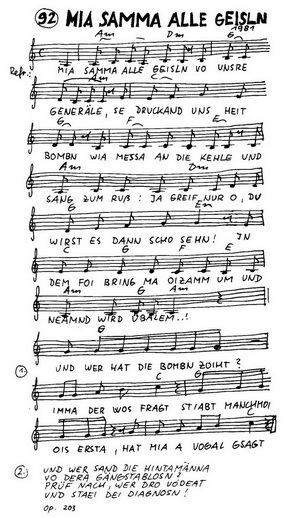 92 MIA SAMMA ALLE GEISLN
Am Dm G 1981
Refr.:
MIA SAMMA ALLE GEISLN VO UNSRE
Am C
GENERÄLE, SE DRUCKAND UNS HEIT
G F Em
BOMBN WIA MESSA AN DIE KEHLE UND
Am Dm
SANG ZUM RUß: JA GREIF NUR O, DU
G Em
WIRST ES DANN SCHO SEHN! IN
C G F E
DEM FOI BRING MA OIZAMM UM UND
Am G Am
NEAMND WIRD ÜBALEM..!
G
UND WER HAT DIE BOMBN ZOIHT?
1. C G
IMMA DER WOS FRAGT STIABT MANCHMOI
C
OIS ERSTA, HAT MIA A VOGAL GSAGT
2. UND WER SAND DIE HINTAMÄNNA
VO DERA GÄNGSTABLOSN?
PRÜF NACH, WER DRO VÖDEAT
UND STAEI DEI DIAGNOSN!
OP. 203